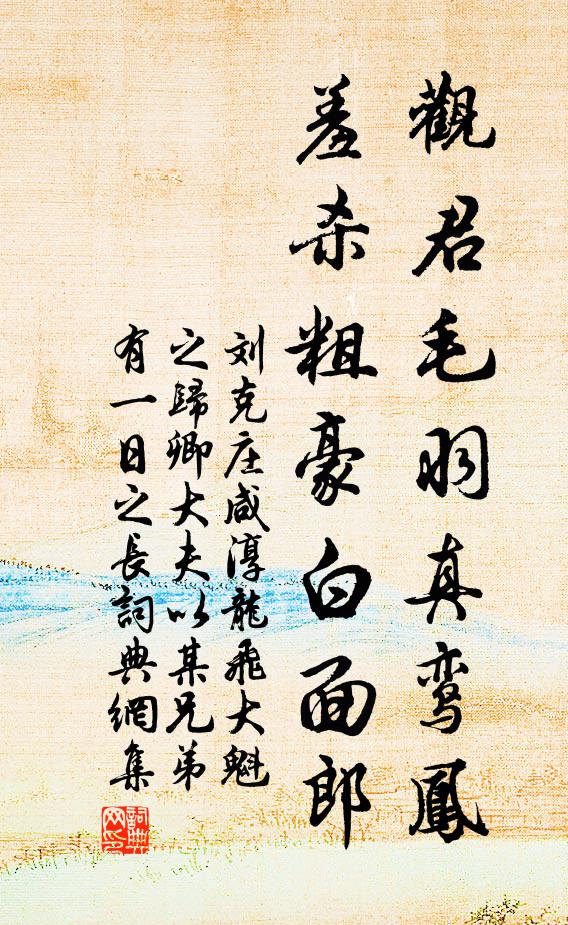 觀君毛羽真鸾鳳
羞杀粗豪白面郎
刘克庄咸淳龍飛大魁
之歸卿大夫以某兄弟
有一日之長詞典網集
詞典網印